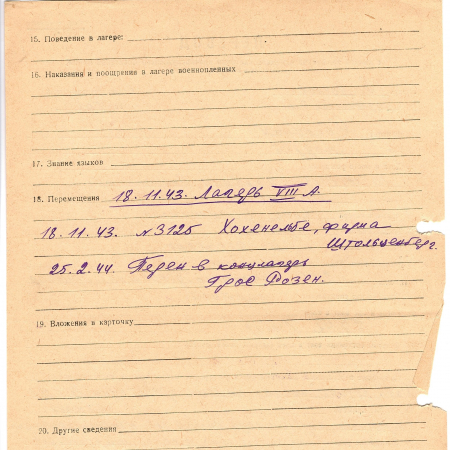 15. Поведение в лагере:
16. Наказания и поощрения в лагере военнопленных
17. Знание языков
18. Перемещения 18.11.43. Лагерь VIII А.
18.11.43. №3125 Хохенельбе, фирма
Штольценберг.
25.2.44. Перен в концлагерь
Грос Розен.
19. Вложения в карточку
20. Другие сведения